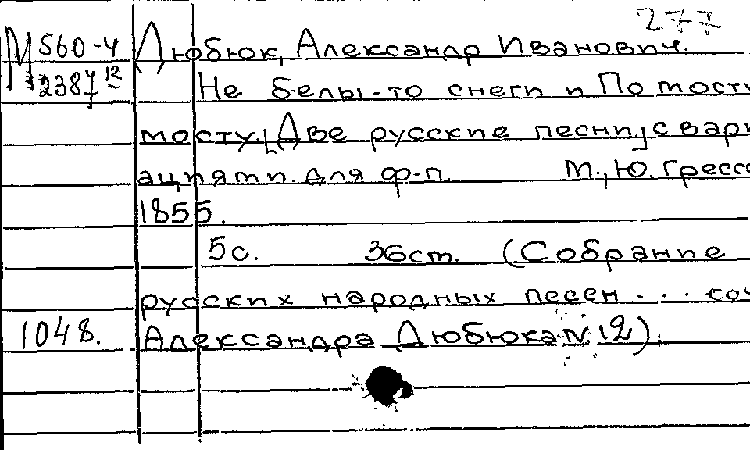 277
М 560-4 Дюбюк, Александр Иванович.
2387 12 Не белы-то снеги и По мосту
мосту. [Две русские песни] с вари
ациями. для ф-п. М., Ю. Гресс
1855.
5с. 36ст. (Собрание
русских народных песен... соч
1048. Александра Дюбюка № 12)